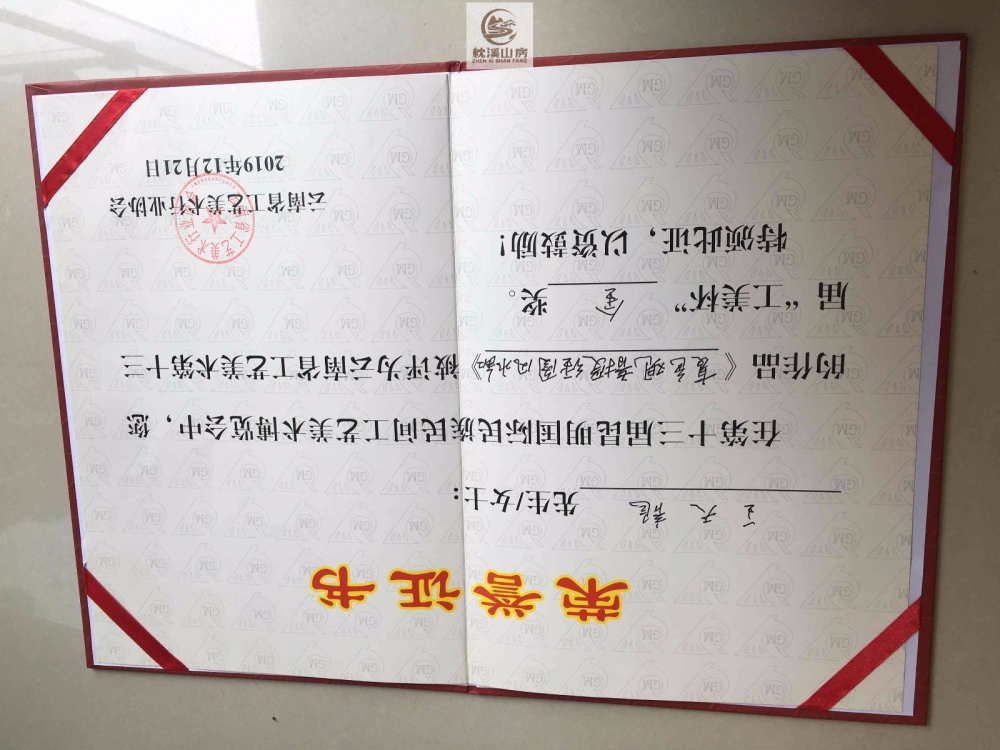 枕溪山房
ZHEN XI SHAN FANG
荣誉证书
王天 先生/女士：
在第十三届昆明国际民族民间工艺美术博览会中，您
的作品《》被评为云南省工艺美术第十三
届“工美杯”金奖。
特颁此证，以资鼓励！
云南省工艺美术行业协会
2019年12月21日